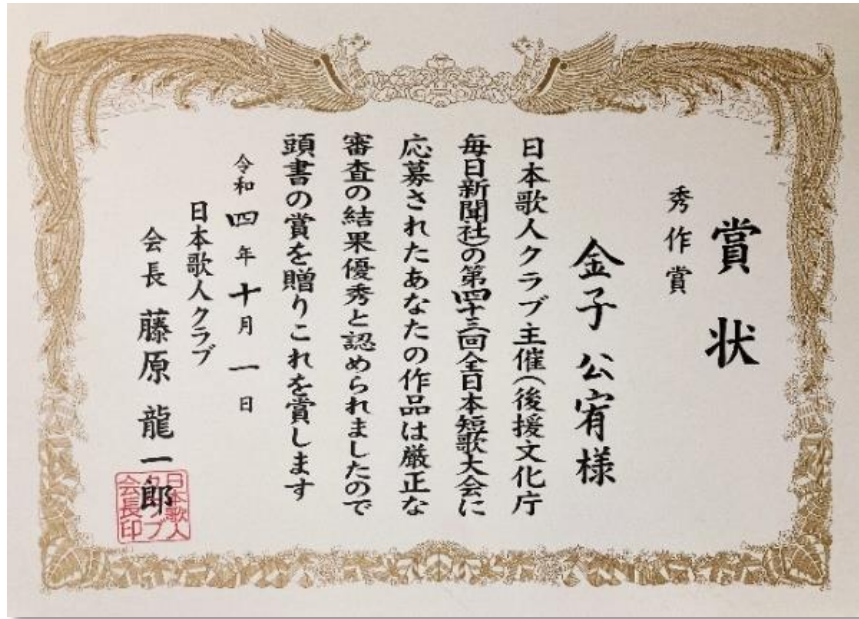 賞状
秀作賞
金子公宥様
日本歌人クラブ主催(後援文化庁
毎日新聞社)の第四十三回全日本短歌大会に
応募されたあなたの作品は厳正な
審査の結果優秀と認められましたので
頭書の賞を贈りこれを賞します
令和四年十月一日
日本歌人クラブ
会長 藤原龍一郎
日本歌人
クラブ
会長印